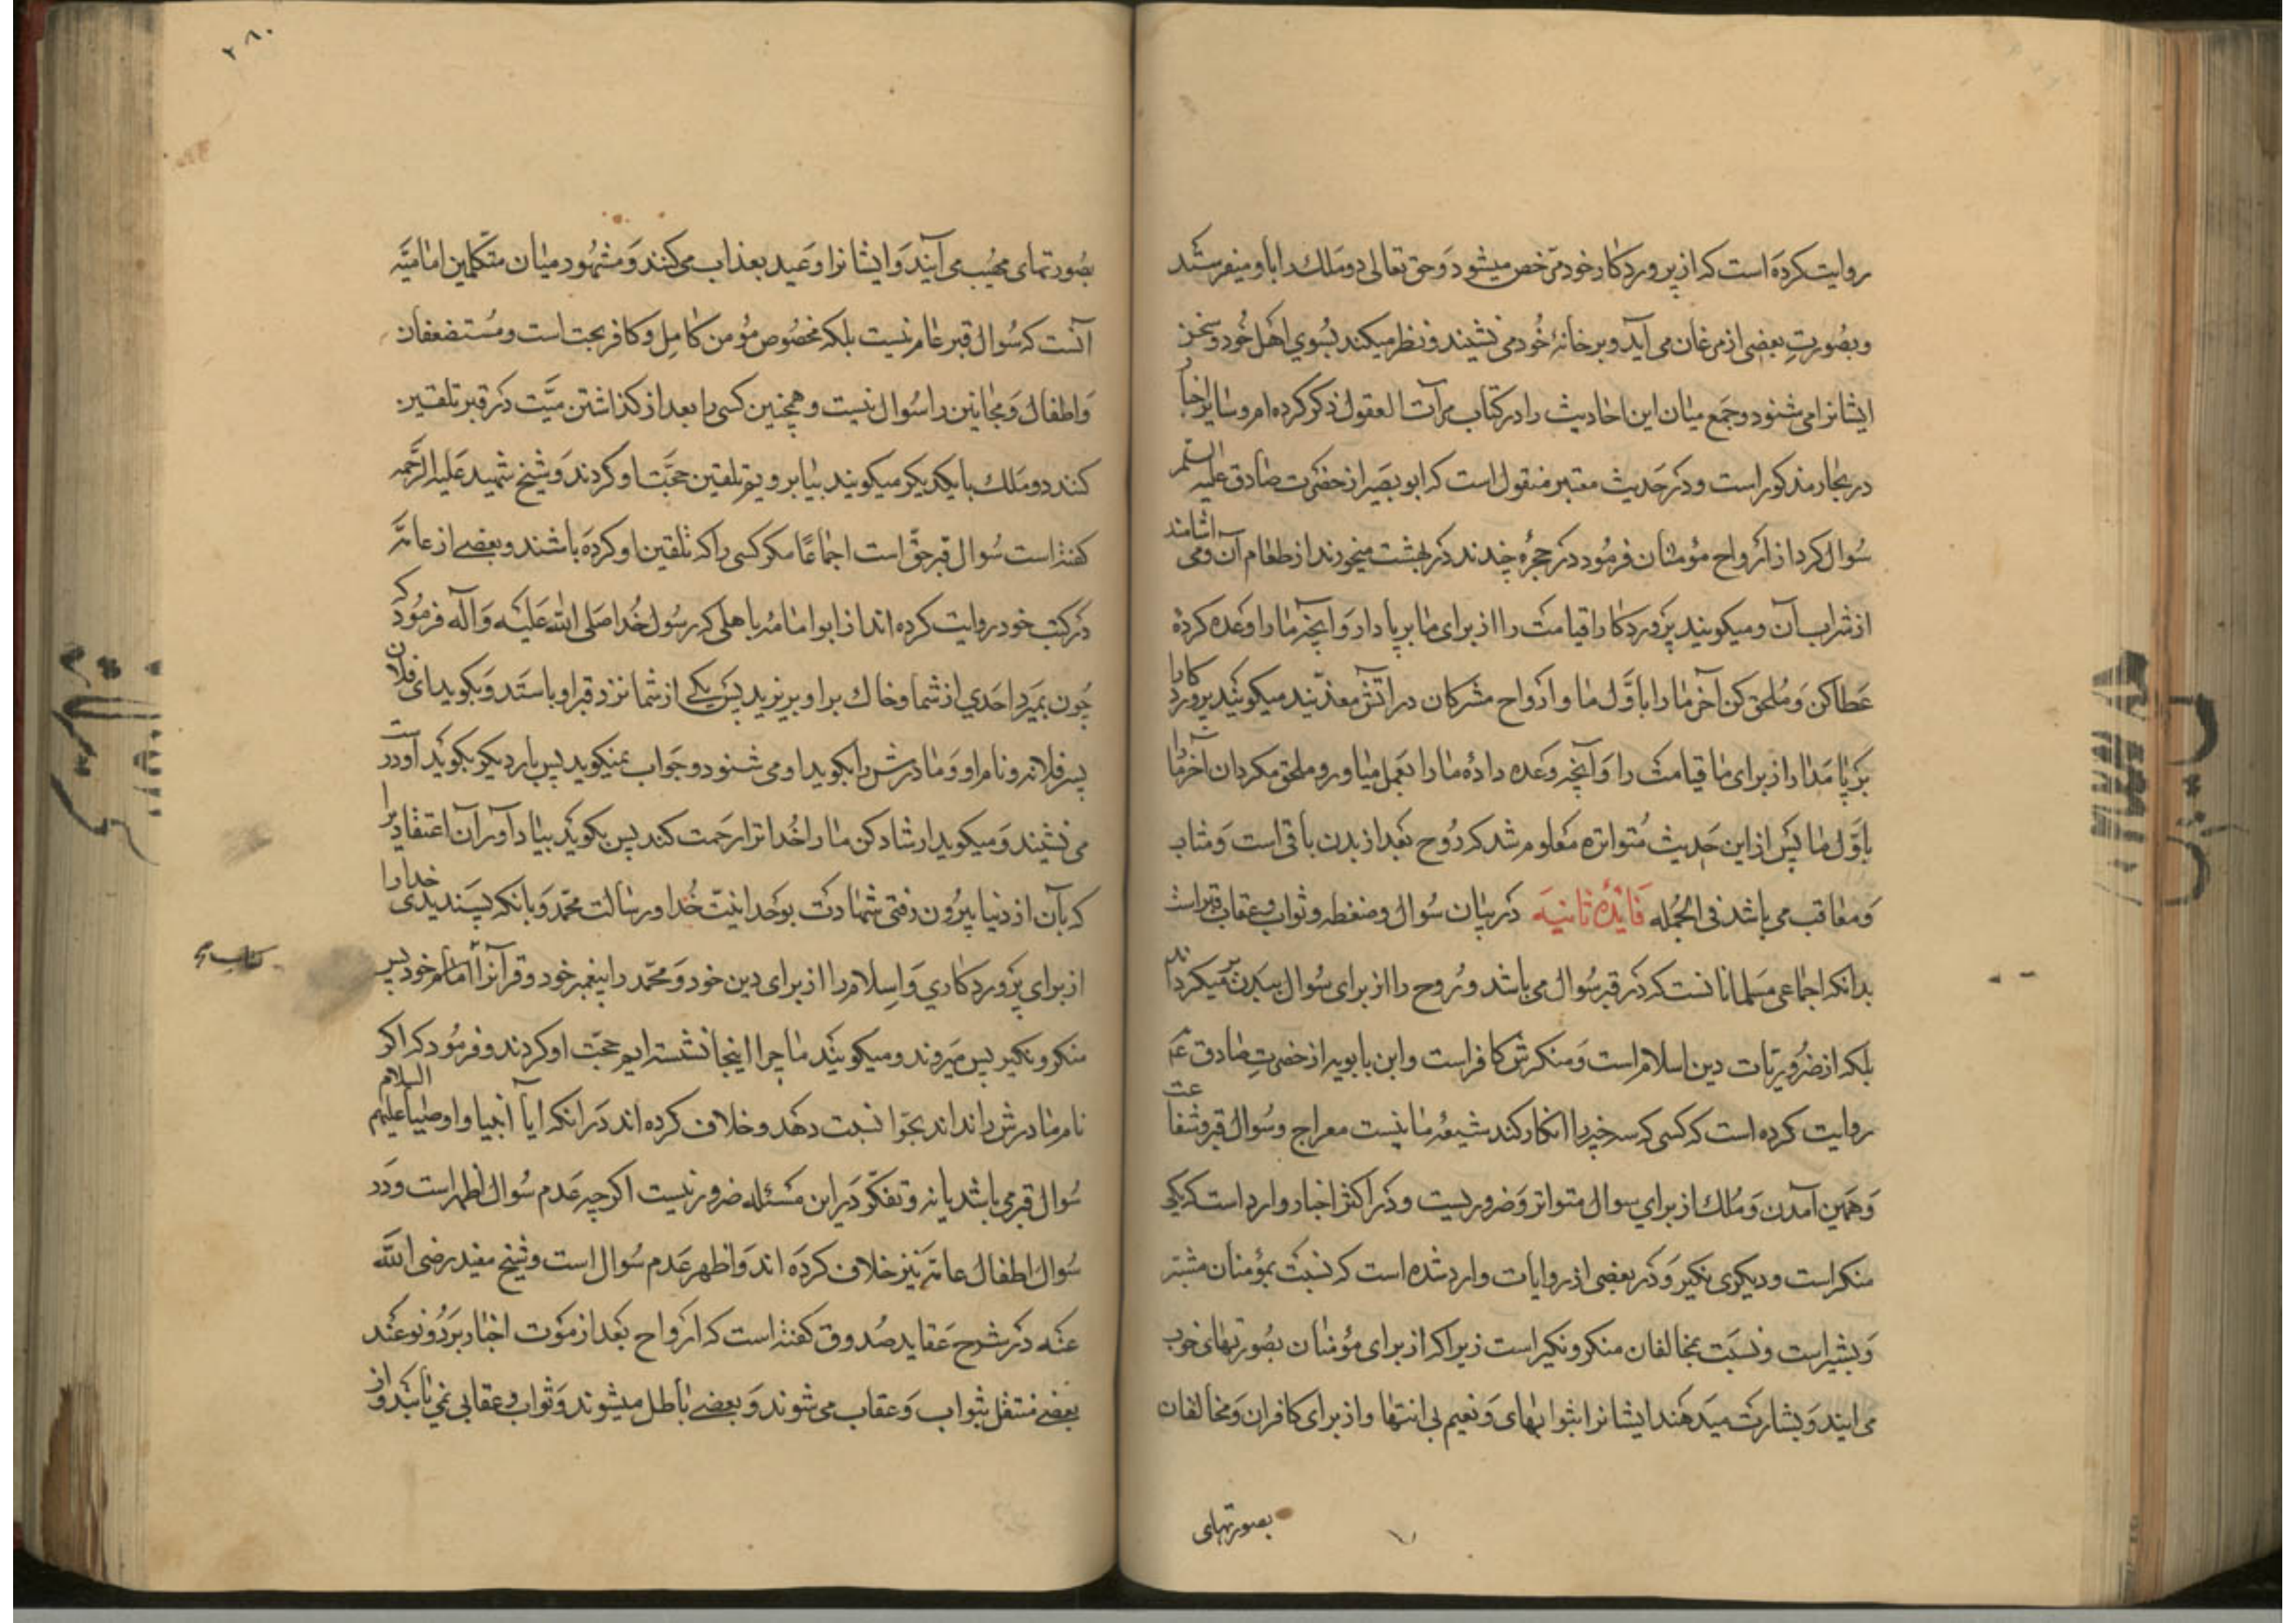 روایت کرده است که از پروردکار خود مرخص میشود و حق تعالی دو ملك را با و میفرستد
و بصورت بعضی از مرغان می آید و بر خانهٔ خود می نشیند و نظر میکند بسوی اهل خود و سخن
ایشانرا می شنود و جمع میان این احادیث را در کتاب مرآت العقول ذکر کرده ام و سایر اخبار
در بحار مذکور است و در حدیث معتبر منقول است که ابو بصیر از حضرت صادق علیه السلم
سؤال کرد از ارواح مؤمنان فرمود در حجره چندند در بهشت میخورند از طعام آن و می اشامند
از شراب آن و میکویند پروردکارا قیامت را از برای ما بر پا دار و آنچه ما را وعده کردهٔ
عطا کن و ملحق کن آخر ما را باول ما و ارواح مشرکان در آتش معذبند میکویند پروردکارا
بر پا مدار از برای ما قیامت را و آنچه وعده دادهٔ ما را بعمل میاور و ملحق مکردان آخر ما را
باول ما پس از این حدیث متواتره معلوم شد که روح بعد از بدن باقی است و مثاب
و معاقب می باشد فی الجمله فائدهٔ ثانیه در بیان سؤال و ضغطه و ثواب و عقاب قبر است
بدانکه اجماعی مسلمانانست که در قبر سؤال می باشد و روح را از برای سؤال ببدن بر میکردانند
بلکه از ضروریات دین اسلام است و منکرش کافر است و ابن بابویه از حضرت صادق ع
روایت کرده است که کسی که سه خیر را انکار کند شیعه ما نیست معراج و سؤال قبر و شفاعت
و همین آمدن و ملك از برای سوال متواتر و ضروریست و در اکثر اخبار وارد است که یکی
منکر است و دیکری نکیر و در بعضی از روایات وارد شده است که نسبت بمؤمنان مبشر
و بشیر است و نسبت بمخالفان منکر و نکیر است زیرا که از برای مؤمنان بصورتهای خوب
می ایند و بشارت میدهند ایشانرا بثوابهای و نعیم بی انتها و از برای کافران و مخالفان
بصورتهای
٢٨٠
بصورتهای مهیب می آیند و ایشانرا وعید بعذاب می کنند و مشهور میان متکلمین امامیه
آنست که سؤال قبر عام نیست بلکه مخصوص مؤمن کامل و کافر بحت است و مستضعفان
و اطفال و مجانین را سؤال نیست و همچنین کسی را بعد از کذاشتن میت در قبر تلقین
کنند دو ملك با یکدیکر میکویند بیا برویم تلقین حجت او کردند و شیخ شهید علیه الرحمه
کفته است سؤال قبر حق است اجماعاً مکر کسی را که تلقین او کرده باشند و بعضی از عامه
در کتب خود روایت کرده اند از ابو امامه باهلی که رسول خدا صلی الله علیه و آله فرمود که
چون بمیرد احدی از شما و خاك بر او بریزید پس یکی از شما نزد قبر او باستد و بکوید ای فلان
پسر فلانه و نام او و مادرش را بکوید او می شنود و جواب نمیکوید پس بار دیکر بکوید او درست
می نشیند و میکوید ارشاد کن ما را خدا ترا رحمت کند پس بکوید بیاد آور آن اعتقاد را
که بآن از دنیا بیرون رفتی شهادت بوحدانیت خدا و رسالت محمد و بانکه پسندیدی خدا را
از برای پروردکاری و اسلام را از برای دین خود و محمد را پیغمبر خود و قرآنرا امام خود پس
منکر و نکیر پس میروند و میکویند ما چرا اینجا نشسته ایم حجت او کردند و فرمود که اکر
نام مادرش را نداند بحوا نسبت دهد و خلاف کرده اند در انکه ایا انبیا و اوصیا علیهم السلام
سؤال قبر می باشد یا نه و تفکر در این مسئله ضرور نیست اکر چه عدم سؤال اظهر است و در
سؤال اطفال عامه نیز خلاف کرده اند و اظهر عدم سؤال است و شیخ مفید رضی الله
عنه در شرح عقاید صدوق کفته است که ارواح بعد از موت اجساد بر دو نوعند
بعضی منتقل بثواب و عقاب می شوند و بعضی باطل میشوند و ثواب و عقابی نمی یابند و از